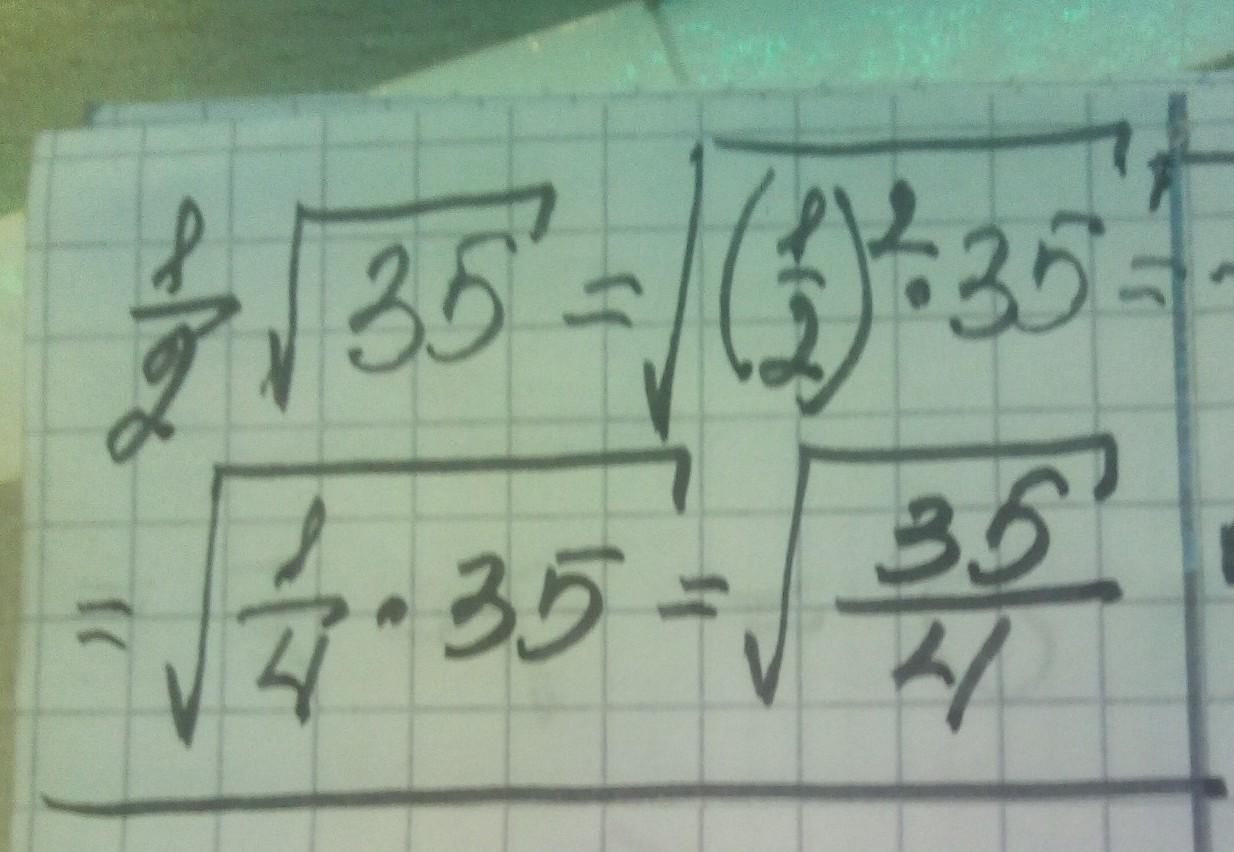 1/2 √35 = √((1/2)² · 35) =
= √(1/4 · 35) = √(35/4)